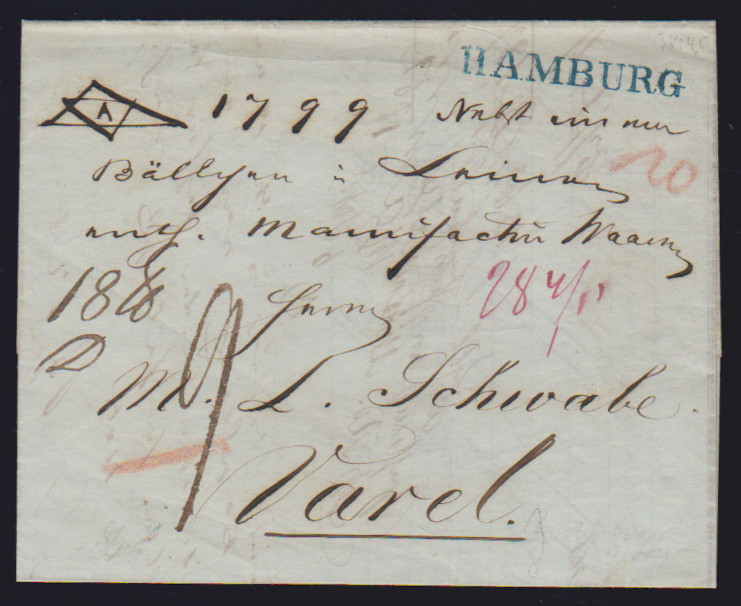 HAMBURG
A 1799 Nebst einem
20
Bällchen in Leinen
enth. Manufactur Waaren
188 Herrn 28
M. L. Schwabe.
Varel.